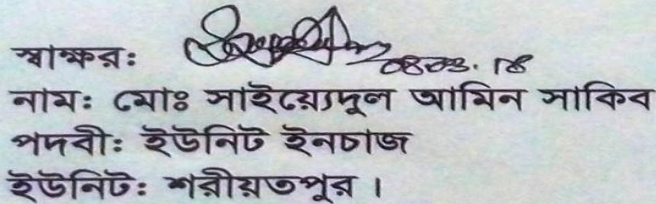 স্বাক্ষর: 08.03.18
নাম: মোঃ সাইয়্যেদুল আমিন সাকিব
পদবী: ইউনিট ইনচাজ
ইউনিট: শরীয়তপুর।